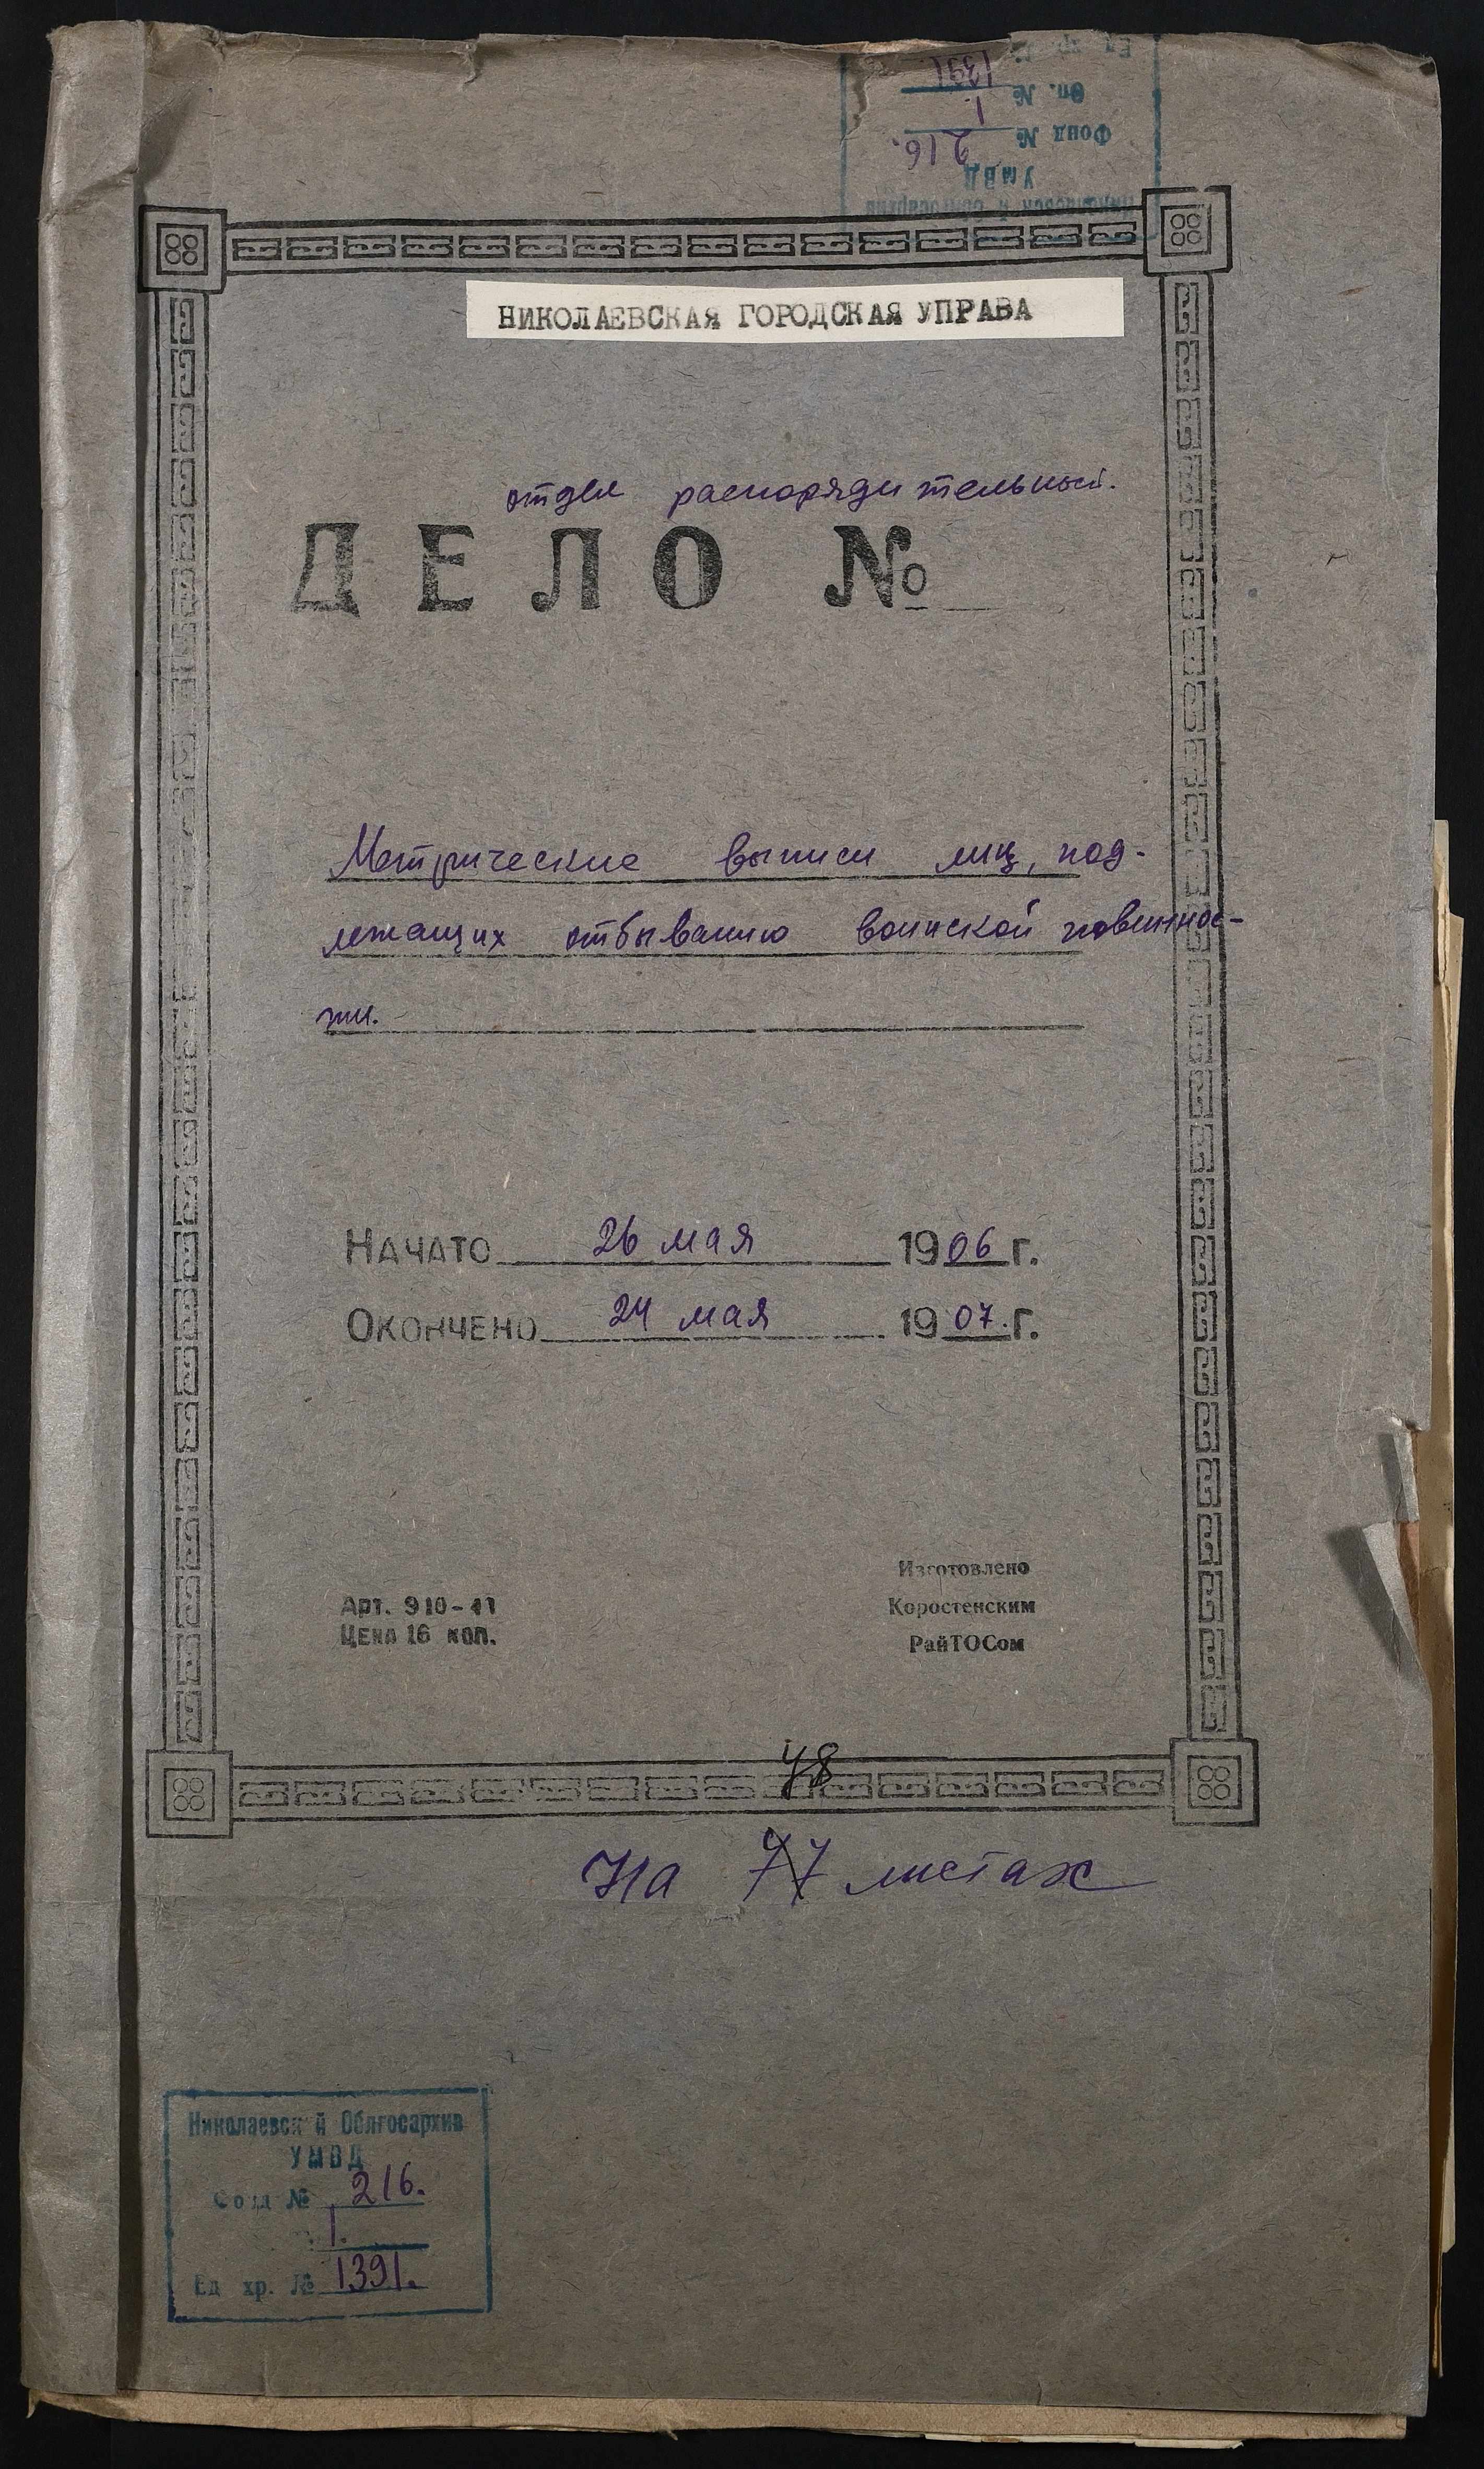 Ед. хр. № 1391.
Оп. № 1.
Фонд № 216.
УМВД
НИКОЛАЕВСКАЯ ГОРОДСКАЯ УПРАВА
отдел распорядительный.
ДЕЛО №
Метрические выписи лиц, под-
лежащих отбыванию воинской повиннос-
ти.
НАЧАТО 26 мая 1906 г.
ОКОНЧЕНО 24 мая 1907. г.
Арт. 910-41
ЦЕНА 16 коп.
Изготовлено
Коростенским
РайТОСом
48
На 77 листах
Николаевский Облгосархив
УМВД
Фонд № 216.
1.
Ед. хр. № 1391.